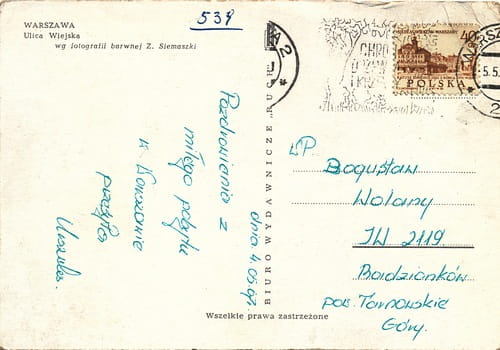 WARSZAWA
Ulica Wiejska
wg fotografii barwnej Z. Siemaszki
539
40
POLSKA
5.5
CHRO
dnia 4.05.67
Pozdrowienia z
miłego pobytu
w Warszawie
przesyła
Urszula.
BIURO WYDAWNICZE „RUCH"
WP.
Bogusław
Wolany
JW 2119.
pow. Tarnowskie
Góry.
Wszelkie prawa zastrzeżone